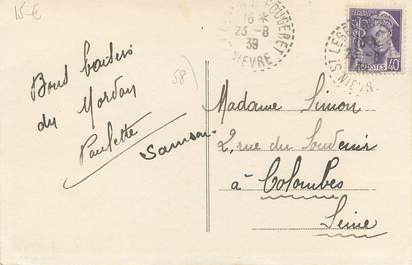 15€
58)
16 *
23-8
39
NIEVRE
POSTES 40
Bons baisers
du Morvan
Paulette
Samson
Madame Simon
2, rue du Souvenir
à Colombes
Seine